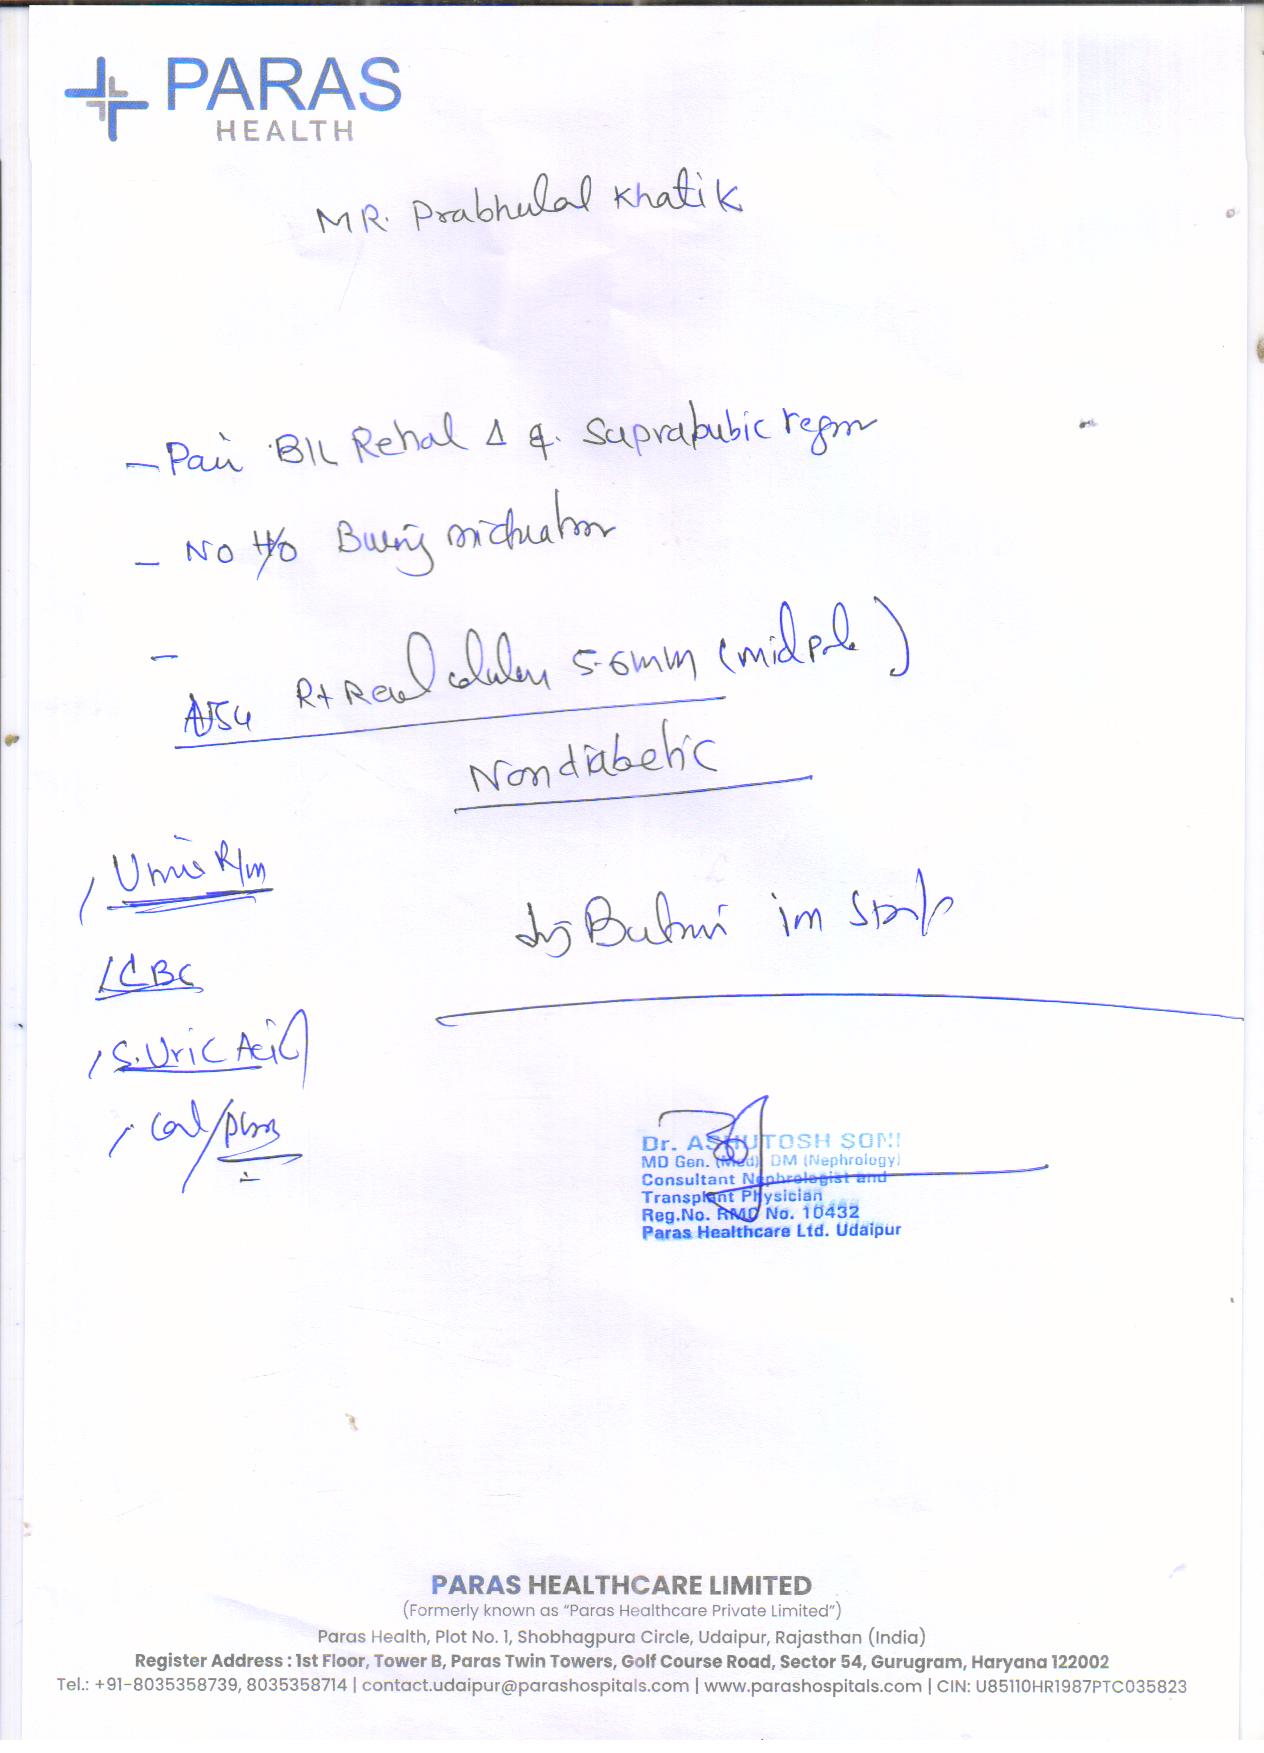 PARAS
HEALTH
MR. Prabhulal Khatik
- Pain B/L Renal Δ & Suprapubic region
- No H/o Burning micturation
-
Rt Renal calculus 5-6mm (midpole)
Nondiabetic
Urine R/m
CBC
S. Uric Acid
Cal/phos
Inj im Stat
Dr. ASHUTOSH SONI
MD Gen. (Med), DM (Nephrology)
Consultant Nephrologist and
Transplant Physician
Reg.No. RMC No. 10432
Paras Healthcare Ltd. Udaipur
PARAS HEALTHCARE LIMITED
(Formerly known as “Paras Healthcare Private Limited”)
Paras Health, Plot No. 1, Shobhagpura Circle, Udaipur, Rajasthan (India)
Register Address : 1st Floor, Tower B, Paras Twin Towers, Golf Course Road, Sector 54, Gurugram, Haryana 122002
Tel.: +91-8035358739, 8035358714 | contact.udaipur@parashospitals.com | www.parashospitals.com | CIN: U85110HR1987PTC035823